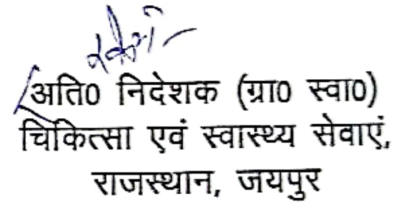 अति0 निदेशक (ग्रा0 स्वा0)
चिकित्सा एवं स्वास्थ्य सेवाएं,
राजस्थान, जयपुर